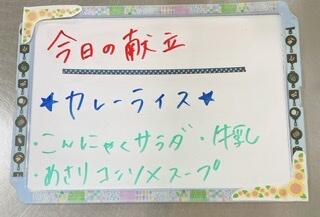 今日の献立
★カレーライス★
・こんにゃくサラダ・牛乳
・あさりコンソメスープ